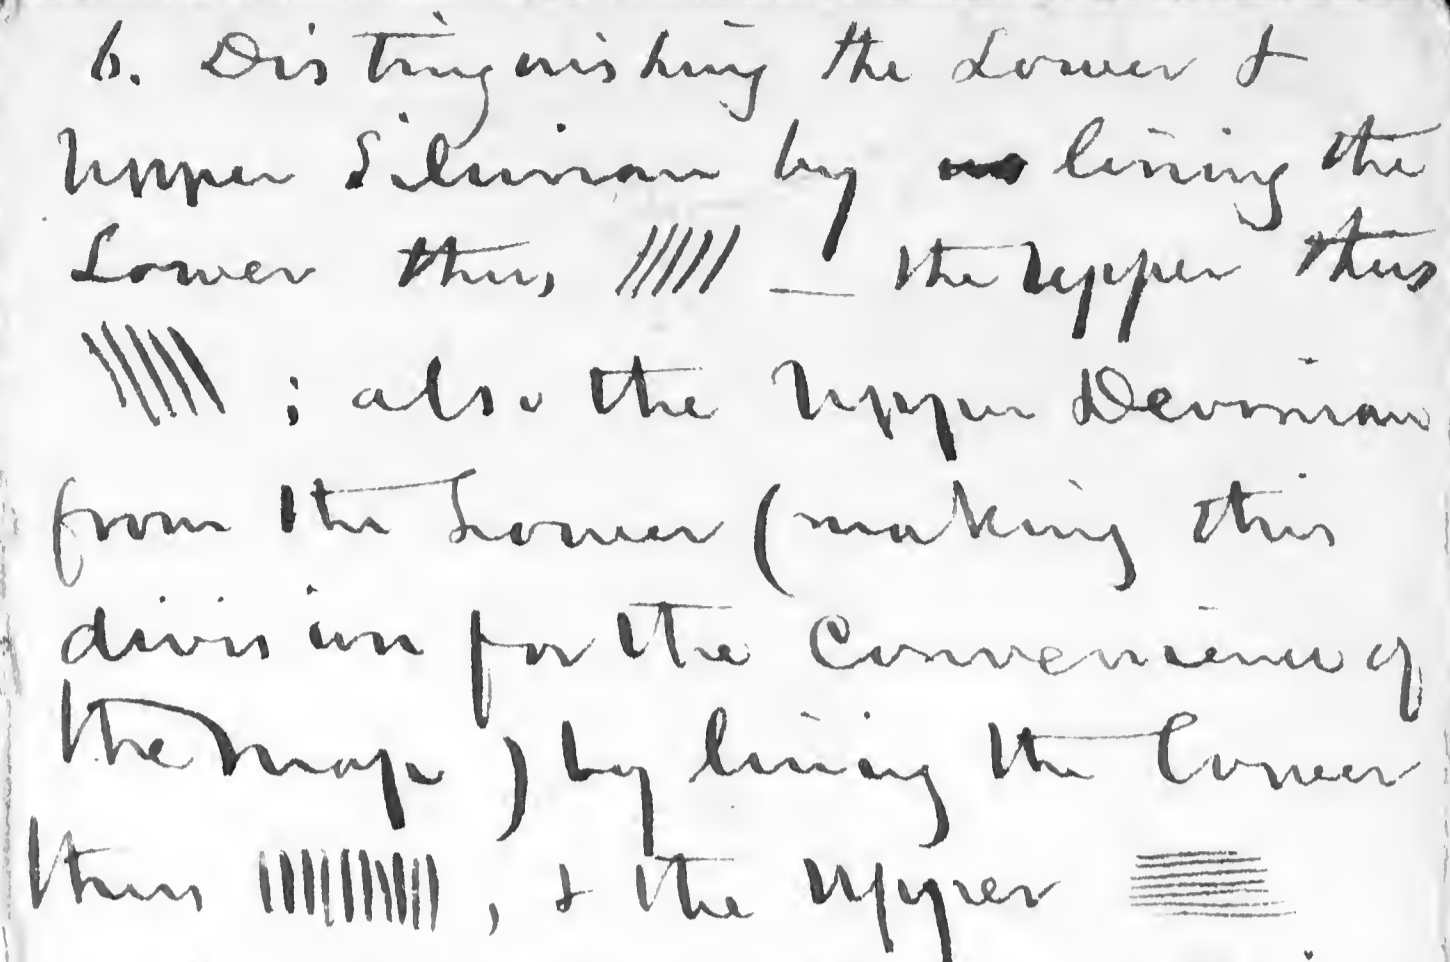 6. Distinguishing the Lower &
Upper Silurian by lining the
Lower thus ///// — the Upper thus
\\\\\ ; also the Upper Devonian
from the Lower (making this
division for the Convenience of
the map) by lining the Lower
thus ||||||||| , & the Upper